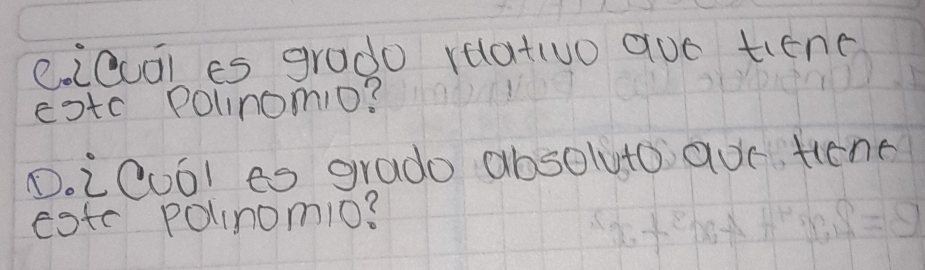 C.¿Cuál es grado relativo que tiene
este Polinomio?
D.¿Cuál es grado absoluto que tiene
este polinomio?